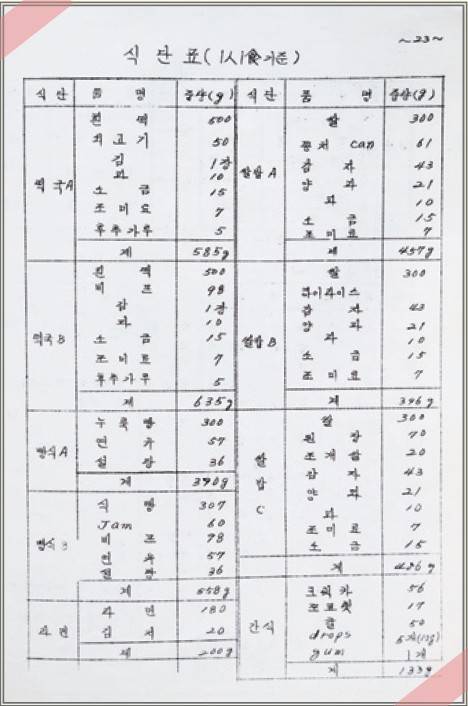 ~23~
식 단 표 (1人1食기준)
식 단 품 명 중량(g)
떡 국 A
흰 떡 500
쇠 고 기 50
김 1장
파 10
소 금 15
조 미 료 7
후 추 가 루 5
계 585g
떡국 B
흰 떡 500
비 프 98
김 1장
파 10
소 금 15
조 미 료 7
후추 가 루 5
계 635g
빵식 A
누 룩 빵 300
연 유 57
설 탕 36
계 390g
빵식 B
식 빵 307
Jam 60
비 프 98
연 유 57
설 탕 36
계 558g
라 면
라 면 180
김 치 20
계 200g
식 단 품 명 중량(g)
쌀밥 A
쌀 300
꽁 치 can 61
감 자 43
양 파 21
파 10
소 금 15
조 미 료 7
계 457g
쌀밥 B
쌀 300
라이라이스
감 자 43
양 파 21
파 10
소 금 15
조 미 료 7
계 396g
쌀 밥 C
쌀 300
된 장 70
조 개 탕 20
감 자 43
양 파 21
파 10
조 미 료 7
소 금 15
계 426g
간식
크 래 카 56
쪼 코 렛 17
귤 50
drops
gum 1개
계 133g